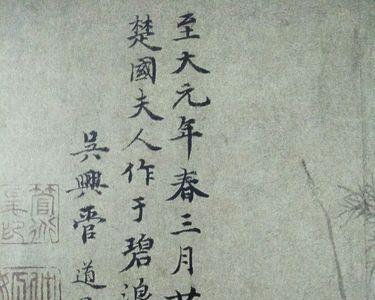 至大元年春三月廿
楚國夫人作于碧浪
吳興管道昇